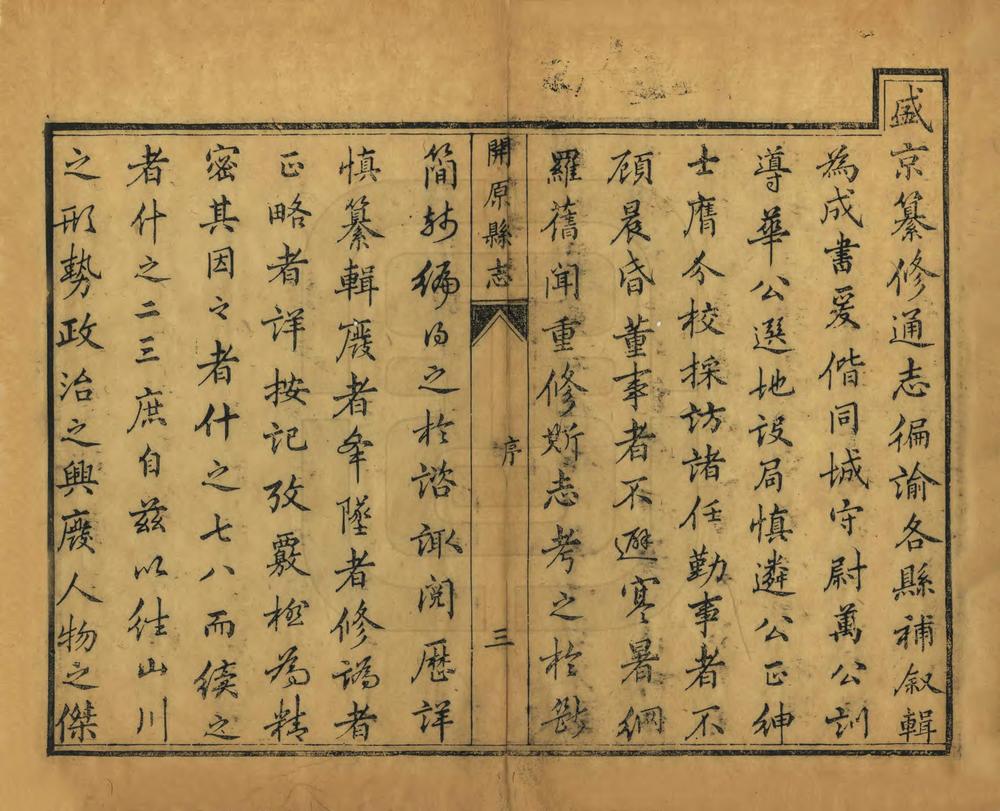 盛京纂修通志徧諭各縣補叙輯
為成書爰偕同城守尉萬公訓
導華公選地設局慎遴公正紳
士膺分校採訪諸任勤事者不
顧晨昏董事者不避寒暑網
羅舊聞重修斯志考之於斷
開原縣志
序
三
簡殘編得之於諮諏閱歷詳
慎纂輯廢者舉墜者修譌者
正略者詳按記攷覈極為精
密其因之者什之七八而續之
者什之二三庶自兹以往山川
之形勢政治之興廢人物之傑